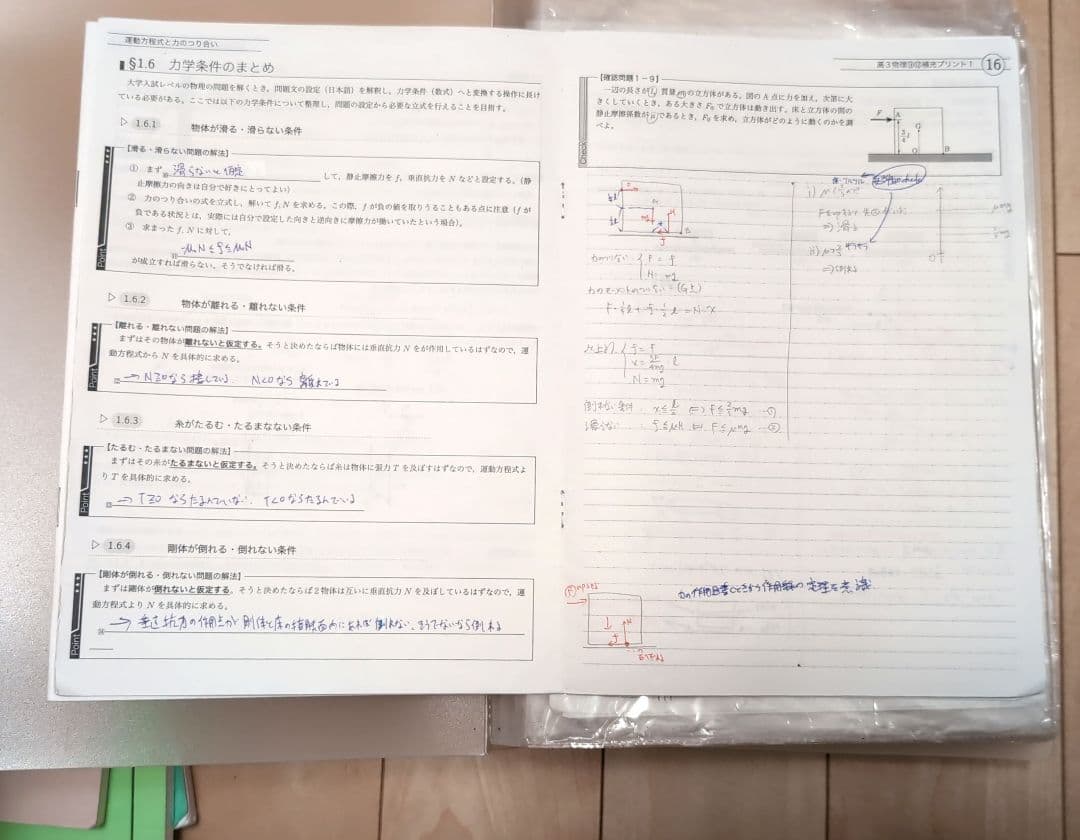 運動方程式と力のつり合い
§1.6 力学条件のまとめ
大学入試レベルの物理の問題を解くとき，問題文の設定（日本語）を解釈し，力学条件（数式）へと変換する操作に長け
ている必要がある。ここでは以下の力学条件について整理し，問題の設定から必要な立式を行えることを目指す。
▷ 1.6.1 物体が滑る・滑らない条件
【滑る・滑らない問題の解法】
① まず 滑らないと仮定 して，静止摩擦力を f，垂直抗力を N などと設定する。（静
止摩擦力の向きは自分で好きにとってよい）
② 力のつり合いの式を立式し，解いて f, N を求める。この際，f が負の値を取りうることもある点に注意（f が
負である状況とは，実際には自分で設定した向きと逆向きに摩擦力が働いていたという場合）。
③ 求まった f, N に対し，
-μN ≦ f ≦ μN
が成立すれば滑らない。そうでなければ滑る。
Point
▷ 1.6.2 物体が離れる・離れない条件
【離れる・離れない問題の解法】
まずはその物体が離れないと仮定する。そうと決めたならば物体には垂直抗力 N をが作用しているはずなので，運
動方程式から N を具体的に求める。
→ N≧0なら接している N<0なら離れている
Point
▷ 1.6.3 糸がたるむ・たるまなない条件
【たるむ・たるまない問題の解法】
まずはその糸がたるまないと仮定する。そうと決めたならば糸は物体に張力 T を及ぼすはずなので，運動方程式よ
り T を具体的に求める。
→ T≧0ならたるんでいない、T<0ならたるんでいる
Point
▷ 1.6.4 剛体が倒れる・倒れない条件
【剛体が倒れる・倒れない問題の解法】
まずは剛体が倒れないと仮定する。そうと決めたならば 2 物体は互いに垂直抗力 N を及ぼしているはずなので，運
動方程式より N を具体的に求める。
→ 垂直抗力の作用点が剛体と床の接触面内にあれば倒れない、そうでないなら倒れる
Point
高3物理③③補充プリント1 16
【確認問題1－9】
一辺の長さが l，質量 m の立方体がある。図の A 点に力を加え，次第に大
きくしていくとき，ある大きさ F₀ で立方体は動き出す。床と立方体の間の
静止摩擦係数が μ であるとき，F₀ を求め，立方体がどのように動くのかを調
べよ。
Check
F A G O B
力のつりあい F = f
N = mg
力のモーメントのつりあい (Gまわり)
以上より f = F
N = mg
倒れない条件
滑らない f ≦ μN ⇔ F ≦ μmg …②
⇒滑る
⇒倒れる
力の作用図書くときから作用線の定理を意識